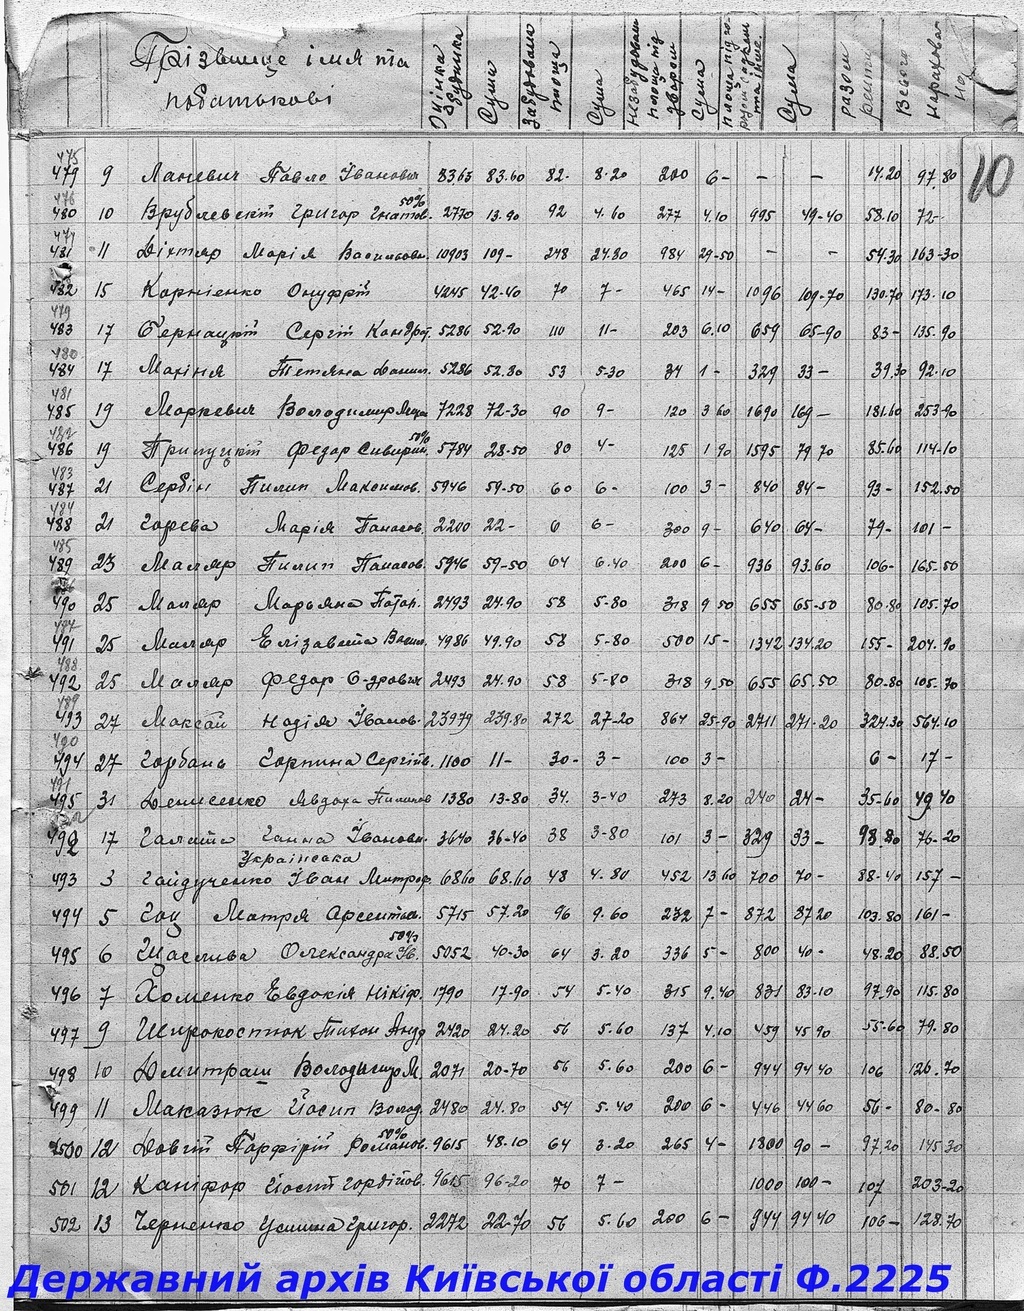 Прізвище імя та
побатькові
Оцінка будинка Сума Забудована площа Сума Незабудован. площа під двором Сума площа під го- Сума Разом ренти Всього нарахова- но
10
475
479 9 Ланевич Павло Іванович 8363 83.60 82- 8-20 200 6- - - 14.20 97.80
476 50%
480 10 Врублевскій Григор Гнатов. 2770 13.90 92 4.60 277 4.10 995 49-40 58.10 72-
477
481 11 Діхтяр Марія Васильовн. 10903 109- 248 24.80 984 29-50 - - 54.30 163-30
482 15 Корнієнко Онуфрій 4245 42-40 70 7- 465 14- 1096 109-70 130.70 173.10
479
483 17 Бернацкій Сергій Кандрат. 5286 52-90 110 11- 203 6.10 659 65-90 83- 135.90
480
484 17 Махіня Тетяна Данил. 5286 52.80 53 5-30 34 1- 329 33- 39.30 92.10
481
485 19 Маркевич Володимир 7228 72-30 90 9- 120 3 60 1690 169- 181.60 253-90
482 50%
486 19 Прилуцкій Федор 5784 28-50 80 4- 125 1 90 1595 79 70 85.60 114-10
483
487 21 Сербін Пилип Максимов. 5946 59-50 60 6- 100 3- 840 84- 93- 152.50
484
488 21 Горева Марія Панасов. 2200 22- 6 6- 300 9- 640 64- 79- 101-
485
489 23 Маляр Пилип Панасов. 5946 59-50 64 6.40 200 6- 936 93.60 106- 165.50
490 25 Маляр Марьяна Потап. 2493 24.90 58 5-80 318 9 50 655 65-50 80.80 105.70
487
491 25 Маляр Елізавета Васил. 4986 49.90 58 5-80 500 15- 1342 134.20 155- 204.90
488
492 25 Маляр Федор 2493 24.90 58 5-80 318 9.50 655 65.50 80-80 105-70
489
493 27 Максай Надія Іванов. 23979 239.80 272 27-20 864 25-90 2711 271-20 324.30 564.10
490
494 27 Горбань Горпина Сергіїв. 1100 11- 30- 3- 100 3- 6- 17-
491
495 31 Денисенко Явдоха Пилипов 1380 13-80 34. 3-40 273 8.20 240 24- 35-60 49 40
492 17 Галата Ганна Івановн. 3640 36-40 38 3-80 101 3- 329 33- 76-20
Українська
493 3 Гайдученко Іван Митроф. 6860 68.60 48 4.80 452 13 60 700 70- 88-40 157-
494 5 Гоц Мотря Арсентіев. 5715 57.20 96 9.60 232 7- 872 87 20 103.80 161-
50%
495 6 Щаслива Олександра Ів. 5052 40-30 64 3.20 336 5- 800 40- 48.20 88.50
496 7 Хоменко Евдокія Нікіф. 1790 17-90 54 5.40 315 9.40 831 83.10 97.90 115.80
497 9 Широкостюк Тихон Андр 2420 24.20 56 5.60 137 4.10 459 45 90 55-60 79.80
498 10 Дмитраш Володимир М. 2071 20-70 56 5.60 200 6- 944 94 40 106 126.70
499 11 Маказюк Йосип Волод. 2480 24.80 54 5.40 200 6- 446 44 60 56- 80-80
50%
500 12 Довгій Парфірій Романов. 9615 48.10 64 3.20 265 4- 1800 90- 97.20 145 30
501 12 Каніфор Йосип Гордійов. 9615 96-20 70 7- 1000 100- 107 203-20
502 13 Черненко Устина Григор. 2272 22-70 56 5.60 200 6- 944 94 40 106- 128.70
Державний архів Київської області Ф.2225